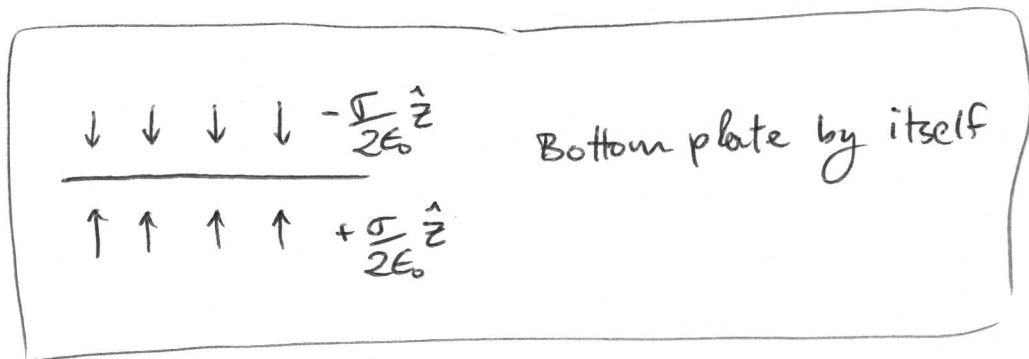 ↓ ↓ ↓ ↓ -σ/2ϵ₀ ẑ
Bottom plate by itself
↑ ↑ ↑ ↑ +σ/2ϵ₀ ẑ